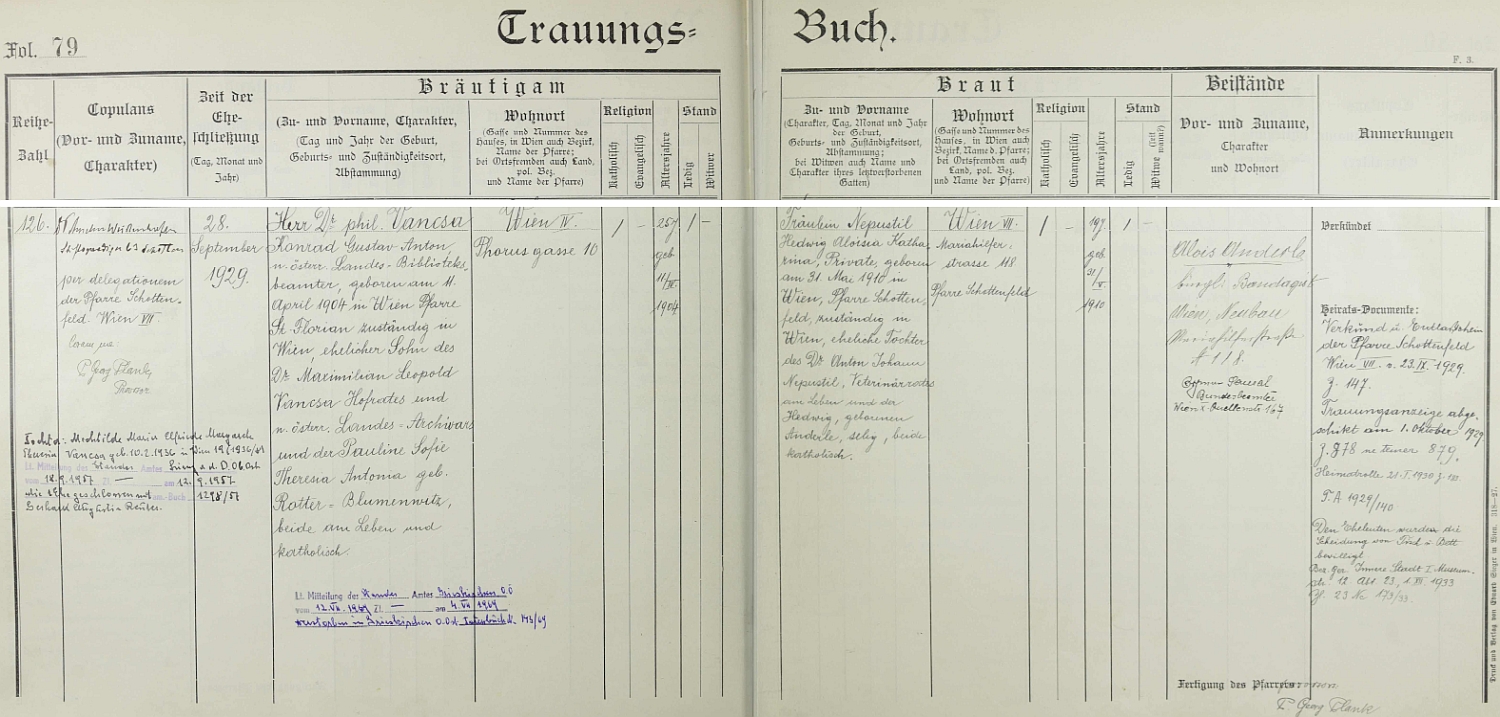 Trauungs=
Buch.
Fol. 79
F. 3.
Reihe-
Zahl
Copulans
(Vor- und Zuname,
Charakter)
Zeit der
Ehe-
schließung
(Tag, Monat und
Jahr)
Bräutigam
(Zu- und Vorname, Charakter,
(Tag und Jahr der Geburt,
Geburts- und Zuständigkeitsort,
Abstammung)
Wohnort
(Gasse und Nummer des
Hauses, in Wien auch Bezirk,
Name der Pfarre;
bei Ortsfremden auch Land,
pol. Bez.
und Name der Pfarre)
Religion
Katholisch
Evangelisch
Altersjahre
Stand
Ledig
Witwer
Braut
Zu- und Vorname
(Charakter, Tag, Monat und Jahr
der Geburt,
Geburts- und Zuständigkeitsort,
Abstammung;
bei Witwen auch Name und
Charakter ihres letztverstorbenen
Gatten)
Wohnort
(Gasse und Nummer des
Hauses, in Wien auch
Bezirk, Name d. Pfarre;
bei Ortsfremden auch
Land, pol. Bez.
und Name der Pfarre)
Religion
Katholisch
Evangelisch
Altersjahre
Stand
Ledig
Witwe (seit wann?)
Beistände
Vor- und Zuname,
Charakter
und Wohnort
Anmerkungen
126.
per delegationem
der Pfarre Schotten-
feld. Wien VII.
coram me
P. Georg Plank
28.
September
1929.
Herr Dr. phil. Vancsa
Konrad Gustav Anton,
n. österr. Landes-Biblioteks-
beamter, geboren am 11.
April 1904 in Wien Pfarre
St. Florian zuständig in
Wien, ehelicher Sohn des
Dr. Maximilian Leopold
Vancsa Hofrates und
n. österr. Landes-Archivars
und der Pauline Sofie
Theresia Antonia geb.
Rotter-Blumenwitz,
beide am Leben und
katholisch.
Wien IV.
Phorusgasse 10
1
–
25 J.
geb
11/IV.
1904
1
–
Fräulein Nepustil
Hedwig Aloisia Katha-
rina, Private, geboren
am 31. Mai 1910 in
Wien, Pfarre Schotten-
feld, zuständig in
Wien, eheliche Tochter
des Dr. Anton Johann
Nepustil, Veterinärrates
am Leben und der
Hedwig, geborenen
Anderle, selig, beide
katholisch.
Wien VII.
Mariahilfer-
strasse 118.
Pfarre Schottenfeld
1
–
19 J.
geb.
31/V.
1910
1
–
Alois Anderle
bürgl. Bandagist
Wien, Neubau
Mariahilferstraße
# 118.
Bundesbeamter
Wien X. Quellenstr. 167
Verkündet
Heirats-Documente:
Verkünd u. Entlaßschein
der Pfarre Schottenfeld
Wien VII. v. 23.IX. 1929.
Z. 147.
Trauungsanzeige abge-
schikt am 1. Oktober 1929
Heimatrolle 21.I.1930
T.A. 1929/140
Den Eheleuten wurden die
Scheidung von Tisch u. Bett
bewilligt
Bez. Ger. Innere Stadt I. Museum-
str. 12 Abt. 23, 1.VII. 1933
Tochter: Mechtilde Maria Elfriede Margarete
Vancsa geb. 10.2.1936 in Wien
Lt. Mitteilung des Standes Amtes a. d. D.
vom 18.9.1957 Zl. — am 12.9.1957
die Ehe geschlossen mit -Buch 1298/57
Gerhard
Lt. Mitteilung des Standes Amtes Grieskirchen O.Ö
vom 12.VII.1969 Zl. — am 4.VII.1969
verstorben in Grieskirchen O.Ö.
Fertigung des Pfarrers
P. Georg Plank
Druck und Verlag von Eduard Sieger in Wien. 318—27.